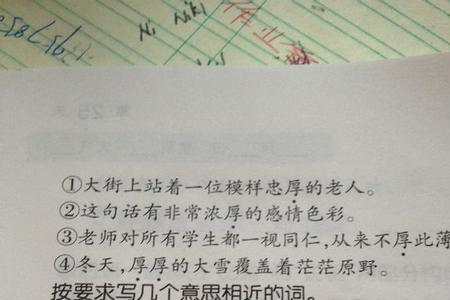 作业
①大街上站着一位模样忠厚的老人。
②这句话有非常浓厚的感情色彩。
③老师对所有学生都一视同仁,从来不厚此薄
④冬天,厚厚的大雪覆盖着茫茫原野。
按要求写几个意思相近的词。